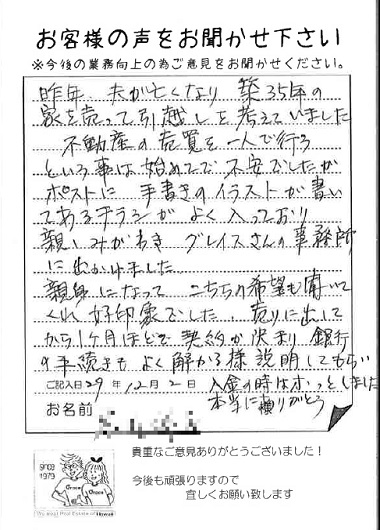 お客様の声をお聞かせ下さい
※今後の業務向上の為ご意見をお聞かせください。
昨年、夫が亡くなり 築35年の
家を売って引越しを考えていました
不動産の売買を一人で行う
という事は始めてで不安でしたが
ポストに 手書きのイラストが書い
てあるチラシが よく入っており
親しみがわき グレイスさんの事務所
に出かけました
親身になって こちらの希望も聞いて
くれ 好印象でした 売りに出して
から1ヶ月ほどで 契約が決まり 銀行
の手続きも よく解かる様説明してもらい
入金の時はホっとしました
本当に有りがとう
ご記入日29年12月2日
お名前
貴重なご意見ありがとうございました！
今後も頑張りますので
宜しくお願い致します
since
1979
Grace
Grace